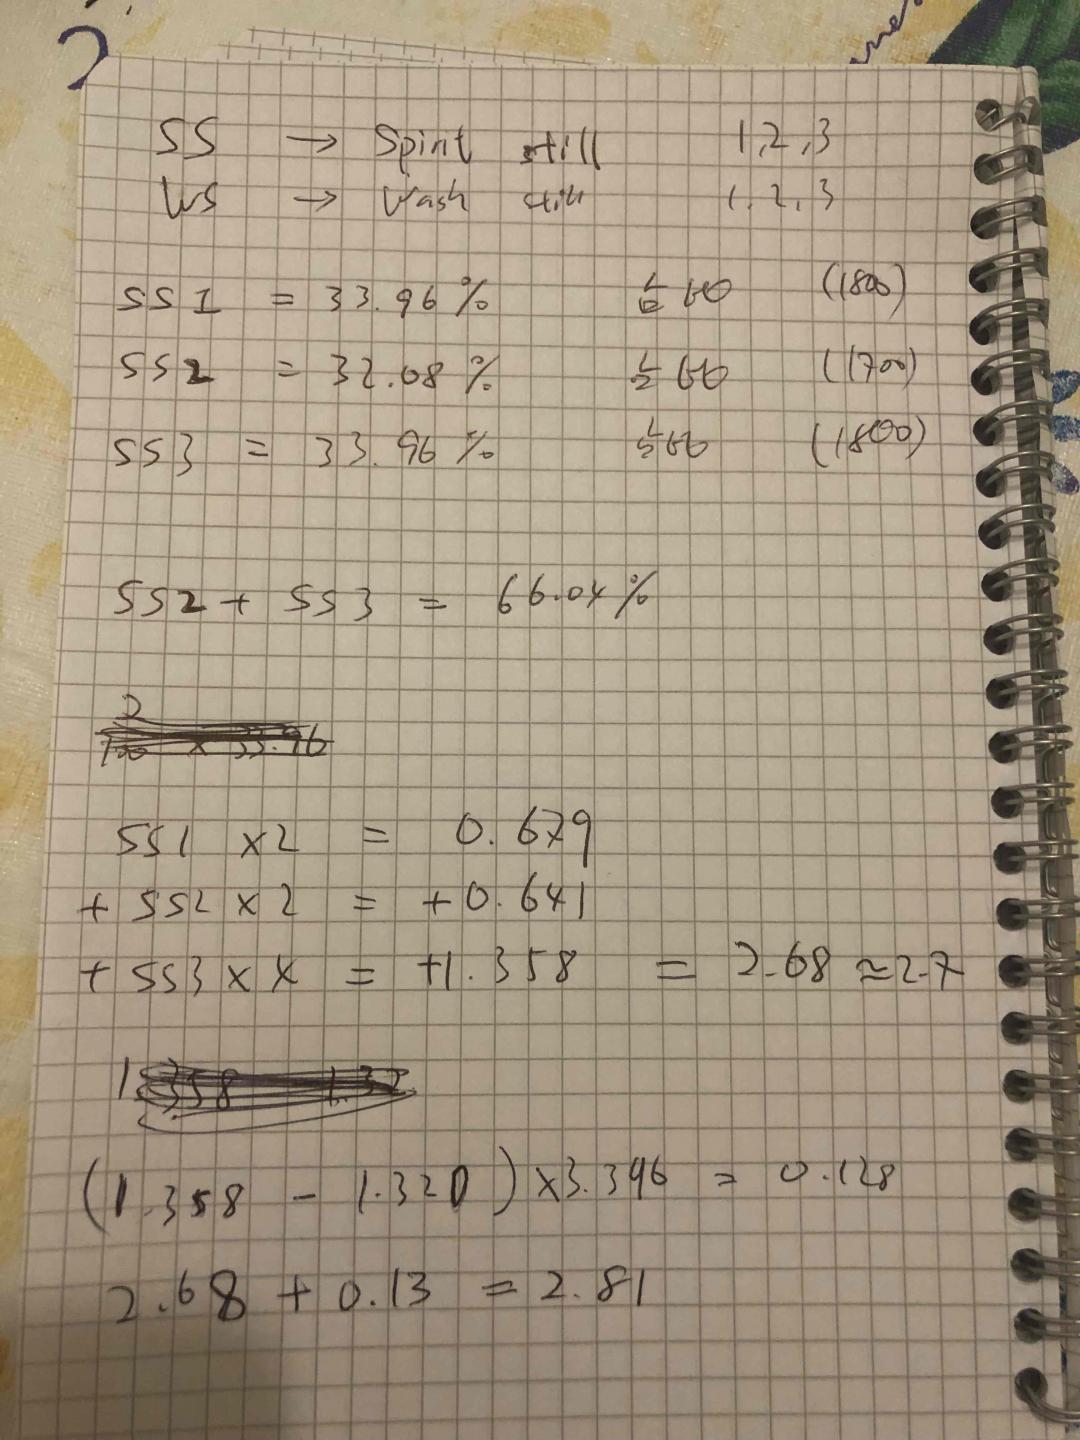 2
SS → Spirit still 1,2,3
WS → Wash still 1,2,3
SS1 = 33.96% (1800)
SS2 = 32.08% (1700)
SS3 = 33.96% (1800)
SS2 + SS3 = 66.04%
SS1 x2 = 0.679
+ SS2 x 2 = +0.641
+ SS3 x 4 = +1.358 = 2.68 ≈2.7
(1.358 - 1.320) x3.396 = 0.128
2.68 + 0.13 = 2.81